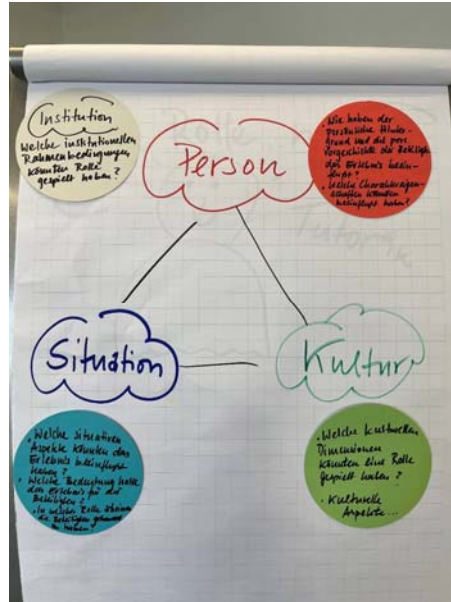 Institution
Welche institutionellen
Rahmenbedingungen
könnten Rolle
gespielt haben?
Person
• Wie haben der
persönliche Hinter-
grund und die pers.
Vorgeschichte der Beteiligten
das Erlebnis beein-
flusst?
• Welche Charaktereigen-
schaften könnten
beeinflusst haben?
Rolle
Tutor
Situation
Kultur
• Welche situativen
Aspekte könnten das
Erlebnis beeinflusst
haben?
• Welche Bedeutung hatte
das Erlebnis für die
Beteiligten?
• In welcher Rolle
die Beteiligten
haben?
• Welche kulturellen
Dimensionen
könnten eine Rolle
gespielt haben?
• Kulturelle
Aspekte...